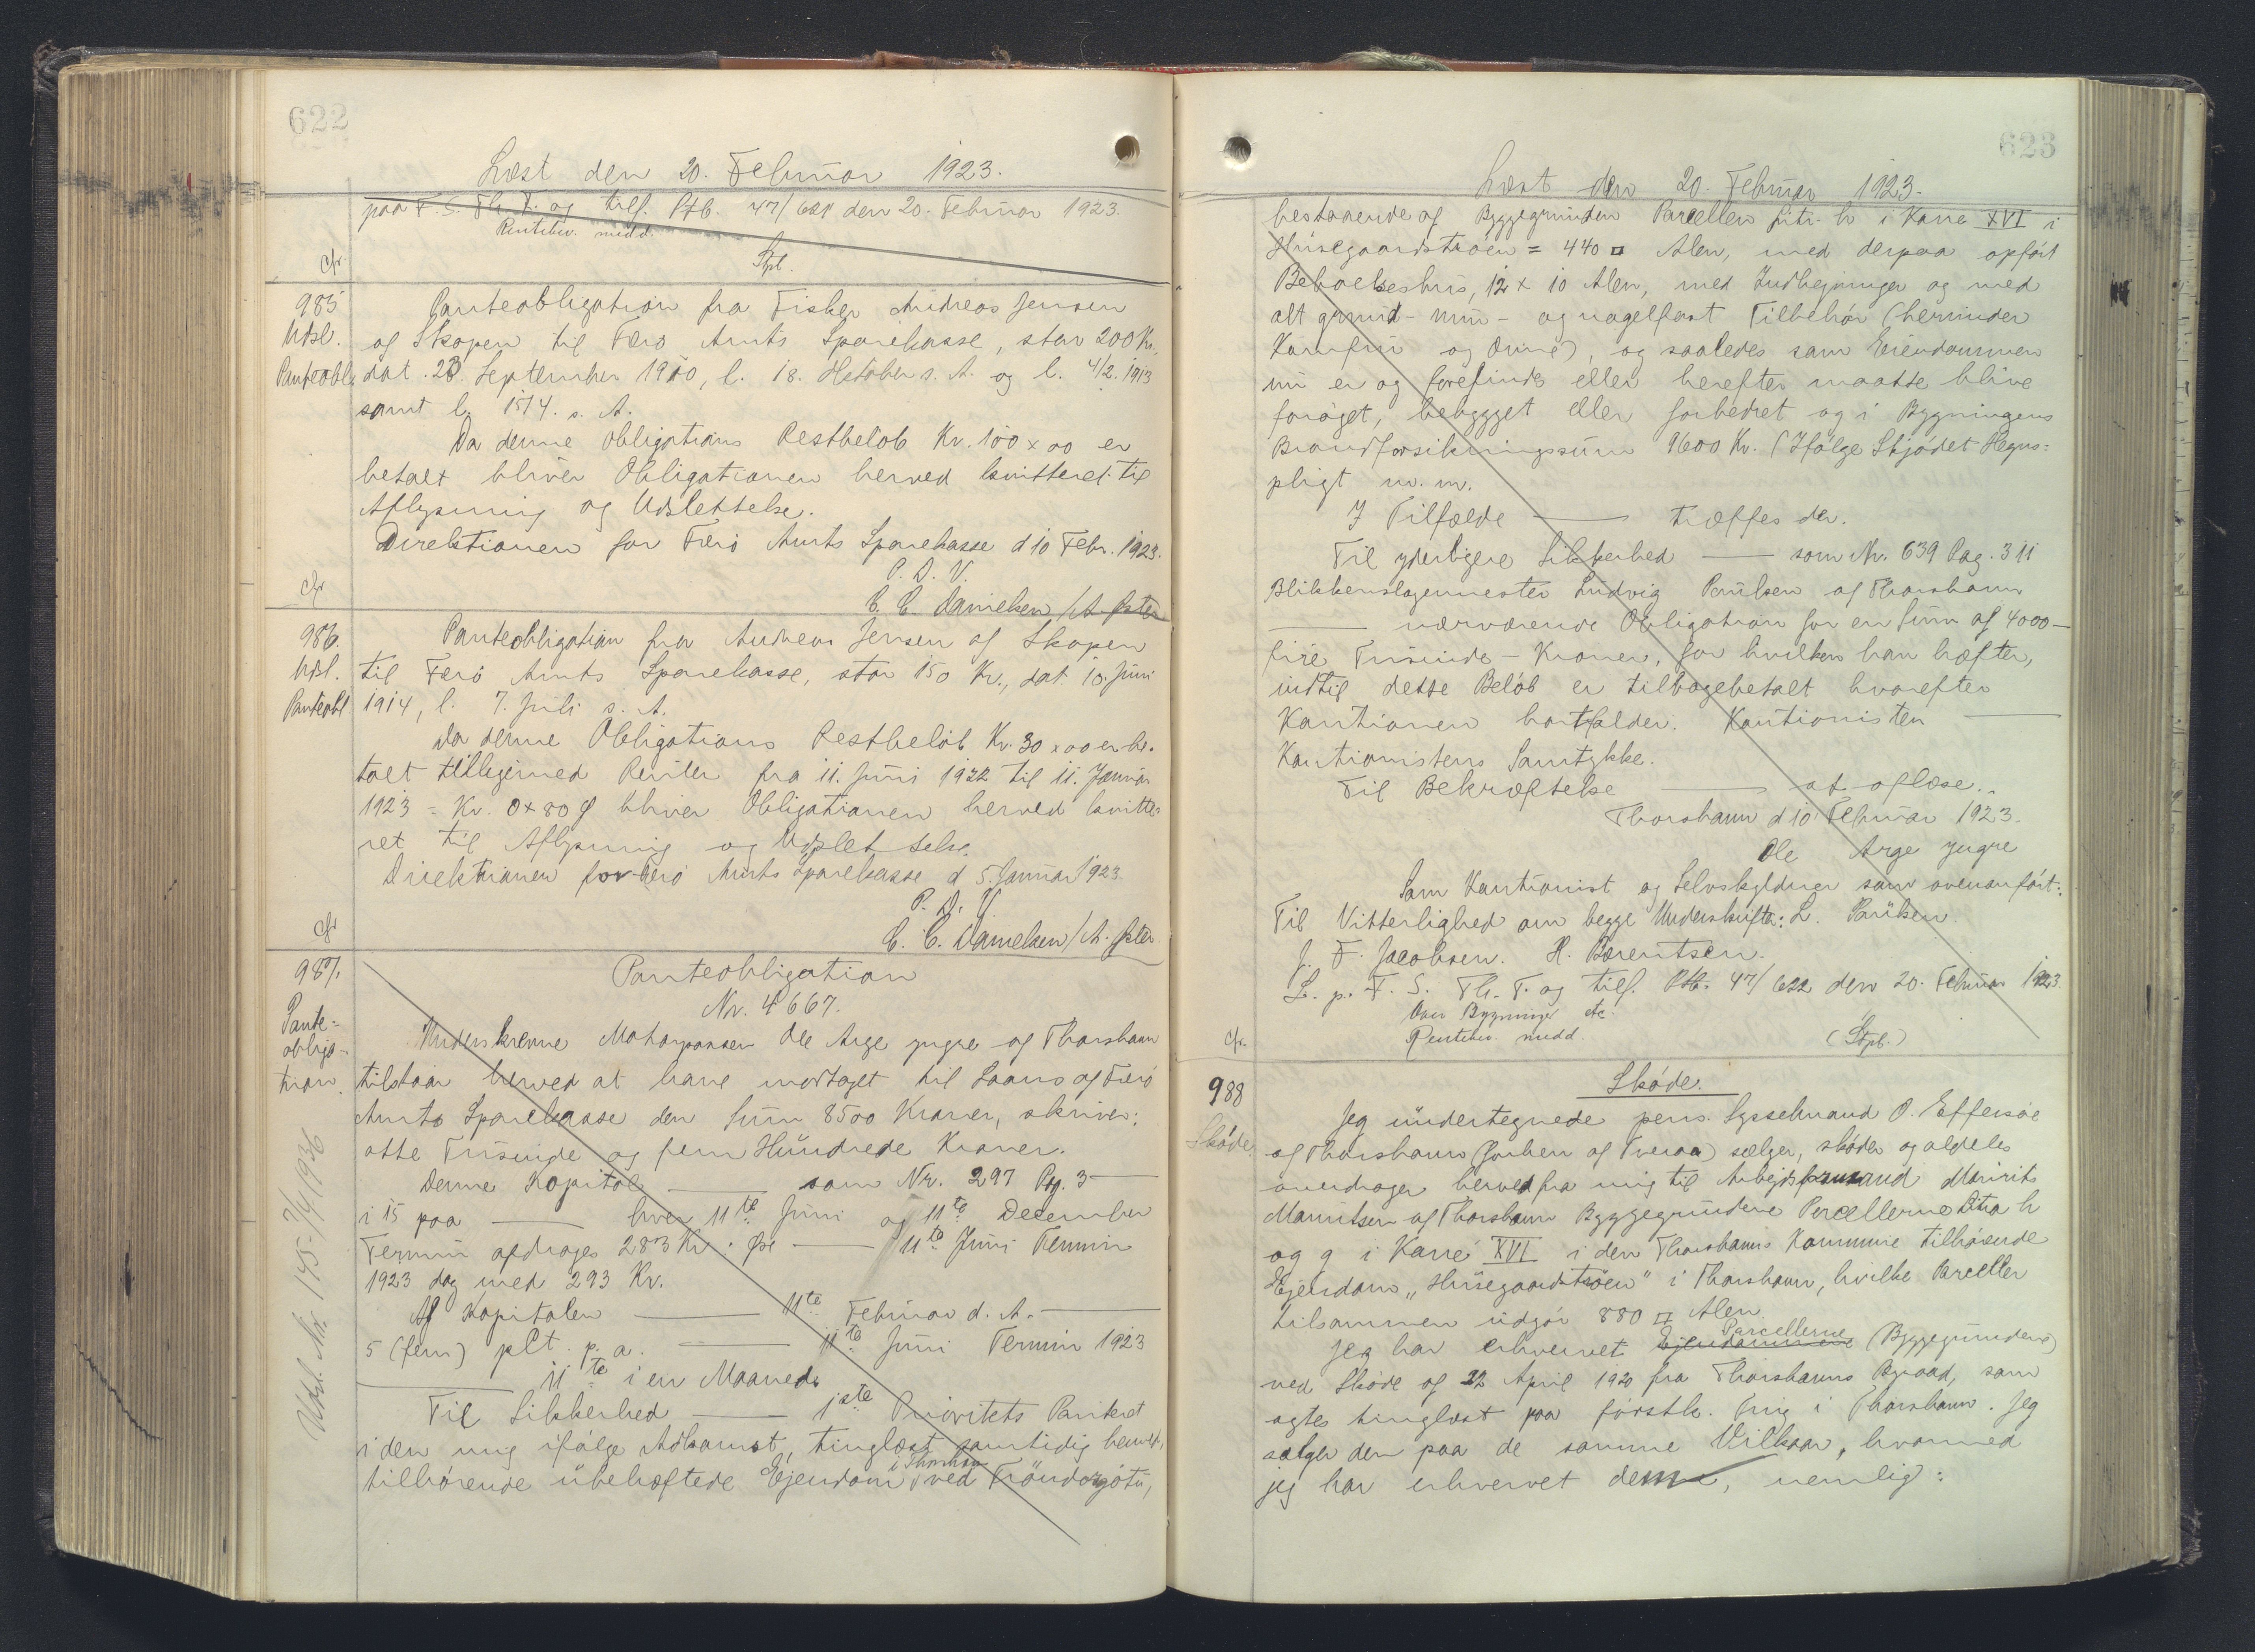 622
Læst den 20. Februar 1923.
paa F. S. Th. T. og tilf. Ptb. 47/621 den 20. Februar 1923.
Rentebev. medd.
Stpl.
Cfr
985
Udsl.
Panteobl.
Panteobligation fra Fisker Andreas Jensen
af Skopen til Færø Amts Sparekasse, stor 200 Kr.,
dat. 23. September 1910, l. 18. Oktober s. A. og l. 4/2. 1913
samt l. 15/4. s. A.
Da denne Obligations Restbeløb Kr. 100 x 00 er
betalt bliver Obligationen herved kvitteret til
Aflysning og Udslettelse.
Direktionen for Færø Amts Sparekasse d 10 Febr. 1923.
P. D. V.
C. C. Danielsen / A. Øster
Cfr
986.
Udsl.
Panteobl
Panteobligation fra Andreas Jensen af Skopen
til Færø Amts Sparekasse, stor 150 Kr., dat. 10. Juni
1914, l. 7. Juli s. A.
Da denne Obligations Restbeløb Kr. 30 x 00 er be-
talt tilligemed Renter fra 11. Juni 1922 til 11. Januar
1923 = Kr. 0 x 80 Ø bliver Obligationen herved kvitte-
ret til Aflysning og Udslettelse.
Direktionen for Færø Amts Sparekasse d 5. Januar 1923.
P. D. V.
C. C. Danielsen / A. Øster.
Cfr
987.
Pante-
obliga-
tion.
Udsl. Nr. 145 - 7/4 1936
Panteobligation
Nr. 4667.
Underskrevne Motorpasser Ole Arge yngre af Thorshavn
tilstaar herved at have modtaget til Laans af Færø
Amts Sparekasse den Sum 8500 Kroner, skriver:
otte Tusinde og fem Hundrede Kroner.
Denne Kapital — som Nr. 297 Pag. 3 —
i 15 paa — hver 11te Juni og 11te December
Termin afdrages 283 Kr. Øre — 11te Juni Termin
1923 dog med 293 Kr.
Af Kapitalen — 11te Februar d. A. —
5 (fem) pCt. p. a. — 11te Juni Termin 1923
— 11te i en Maaned
Til Sikkerhed — 1ste Prioritets Panteret
i den mig ifølge Adkomst, tinglæst samtidig hermed,
tilhørende ubehæftede Ejendom i Thorshavn ved Tróndargøtu,
623
Læst den 20. Februar 1923.
bestaaende af Byggegrunden Parcellen Litr. h i Karré XVI i
Húsegaardstrøen = 440 □ Alen, med derpaa opført
Beboelseshus, 12 x 10 Alen, med Indhegninger og med
alt grund- mur- og nagelfast Tilbehør (herunder
Komfur og Ovne), og saaledes som Ejendommen
nu er og forefindes eller herefter maatte blive
forøget, bebygget eller forbedret og i Bygningens
Brandforsikringssum 9600 Kr. (Ifølge Skjødet Hegns-
pligt m. m.
I Tilfælde — træffes der.
Til yderligere Sikkerhed — som Nr. 639 Pag. 311
Blikkenslagermester Ludvig Poulsen af Thorshavn
— nærværende Obligation for en Sum af 4000 —
fire Tusinde — Kroner, for hvilken han hæfter,
indtil dette Beløb er tilbagebetalt hvorefter
Kautionen bortfalder. Kautionisten —
Kautionistens Samtykke.
Til Bekræftelse — at aflæse.
Thorshavn d 10 Februar 1923.
Ole Arge yngre
Som Kautionist og Selvskyldner som ovenanført:
Til Vitterlighed om begge Underskrifter: L. Poulsen.
J. F. Jacobsen. H. Berentsen.
L. p. F. S. Th. T. og tilf. Ptb. 47/622 den 20. Februar 1923.
Over Bygninger etc.
Rentebev. medd.
(Stpl.)
Cfr.
988
Skøde
Skøde.
Jeg undertegnede pens. Sysselmand O. Effersøe
af Thorshavn (forhen af Tveraa) sælger, skøder og aldeles
overdrager herved fra mig til Arbejdsformand Mourits
Mouritsen af Thorshavn Byggegrundene Parcellerne Litra h
og g i Karré XVI i den Thorshavns Kommune tilhørende
Ejendom „Húsegaardstrøen" i Thorshavn, hvilke Parceller
tilsammen udgør 880 □ Alen
Jeg har erhvervet Ejendommene Parcellerne (Byggegrundene)
ved Skøde af 22 April 1920 fra Thorshavns Byraad, som
agtes tinglæst paa førstk. Ting i Thorshavn. Jeg
sælger den paa de samme Vilkaar, hvormed
jeg har erhvervet dem, nemlig: